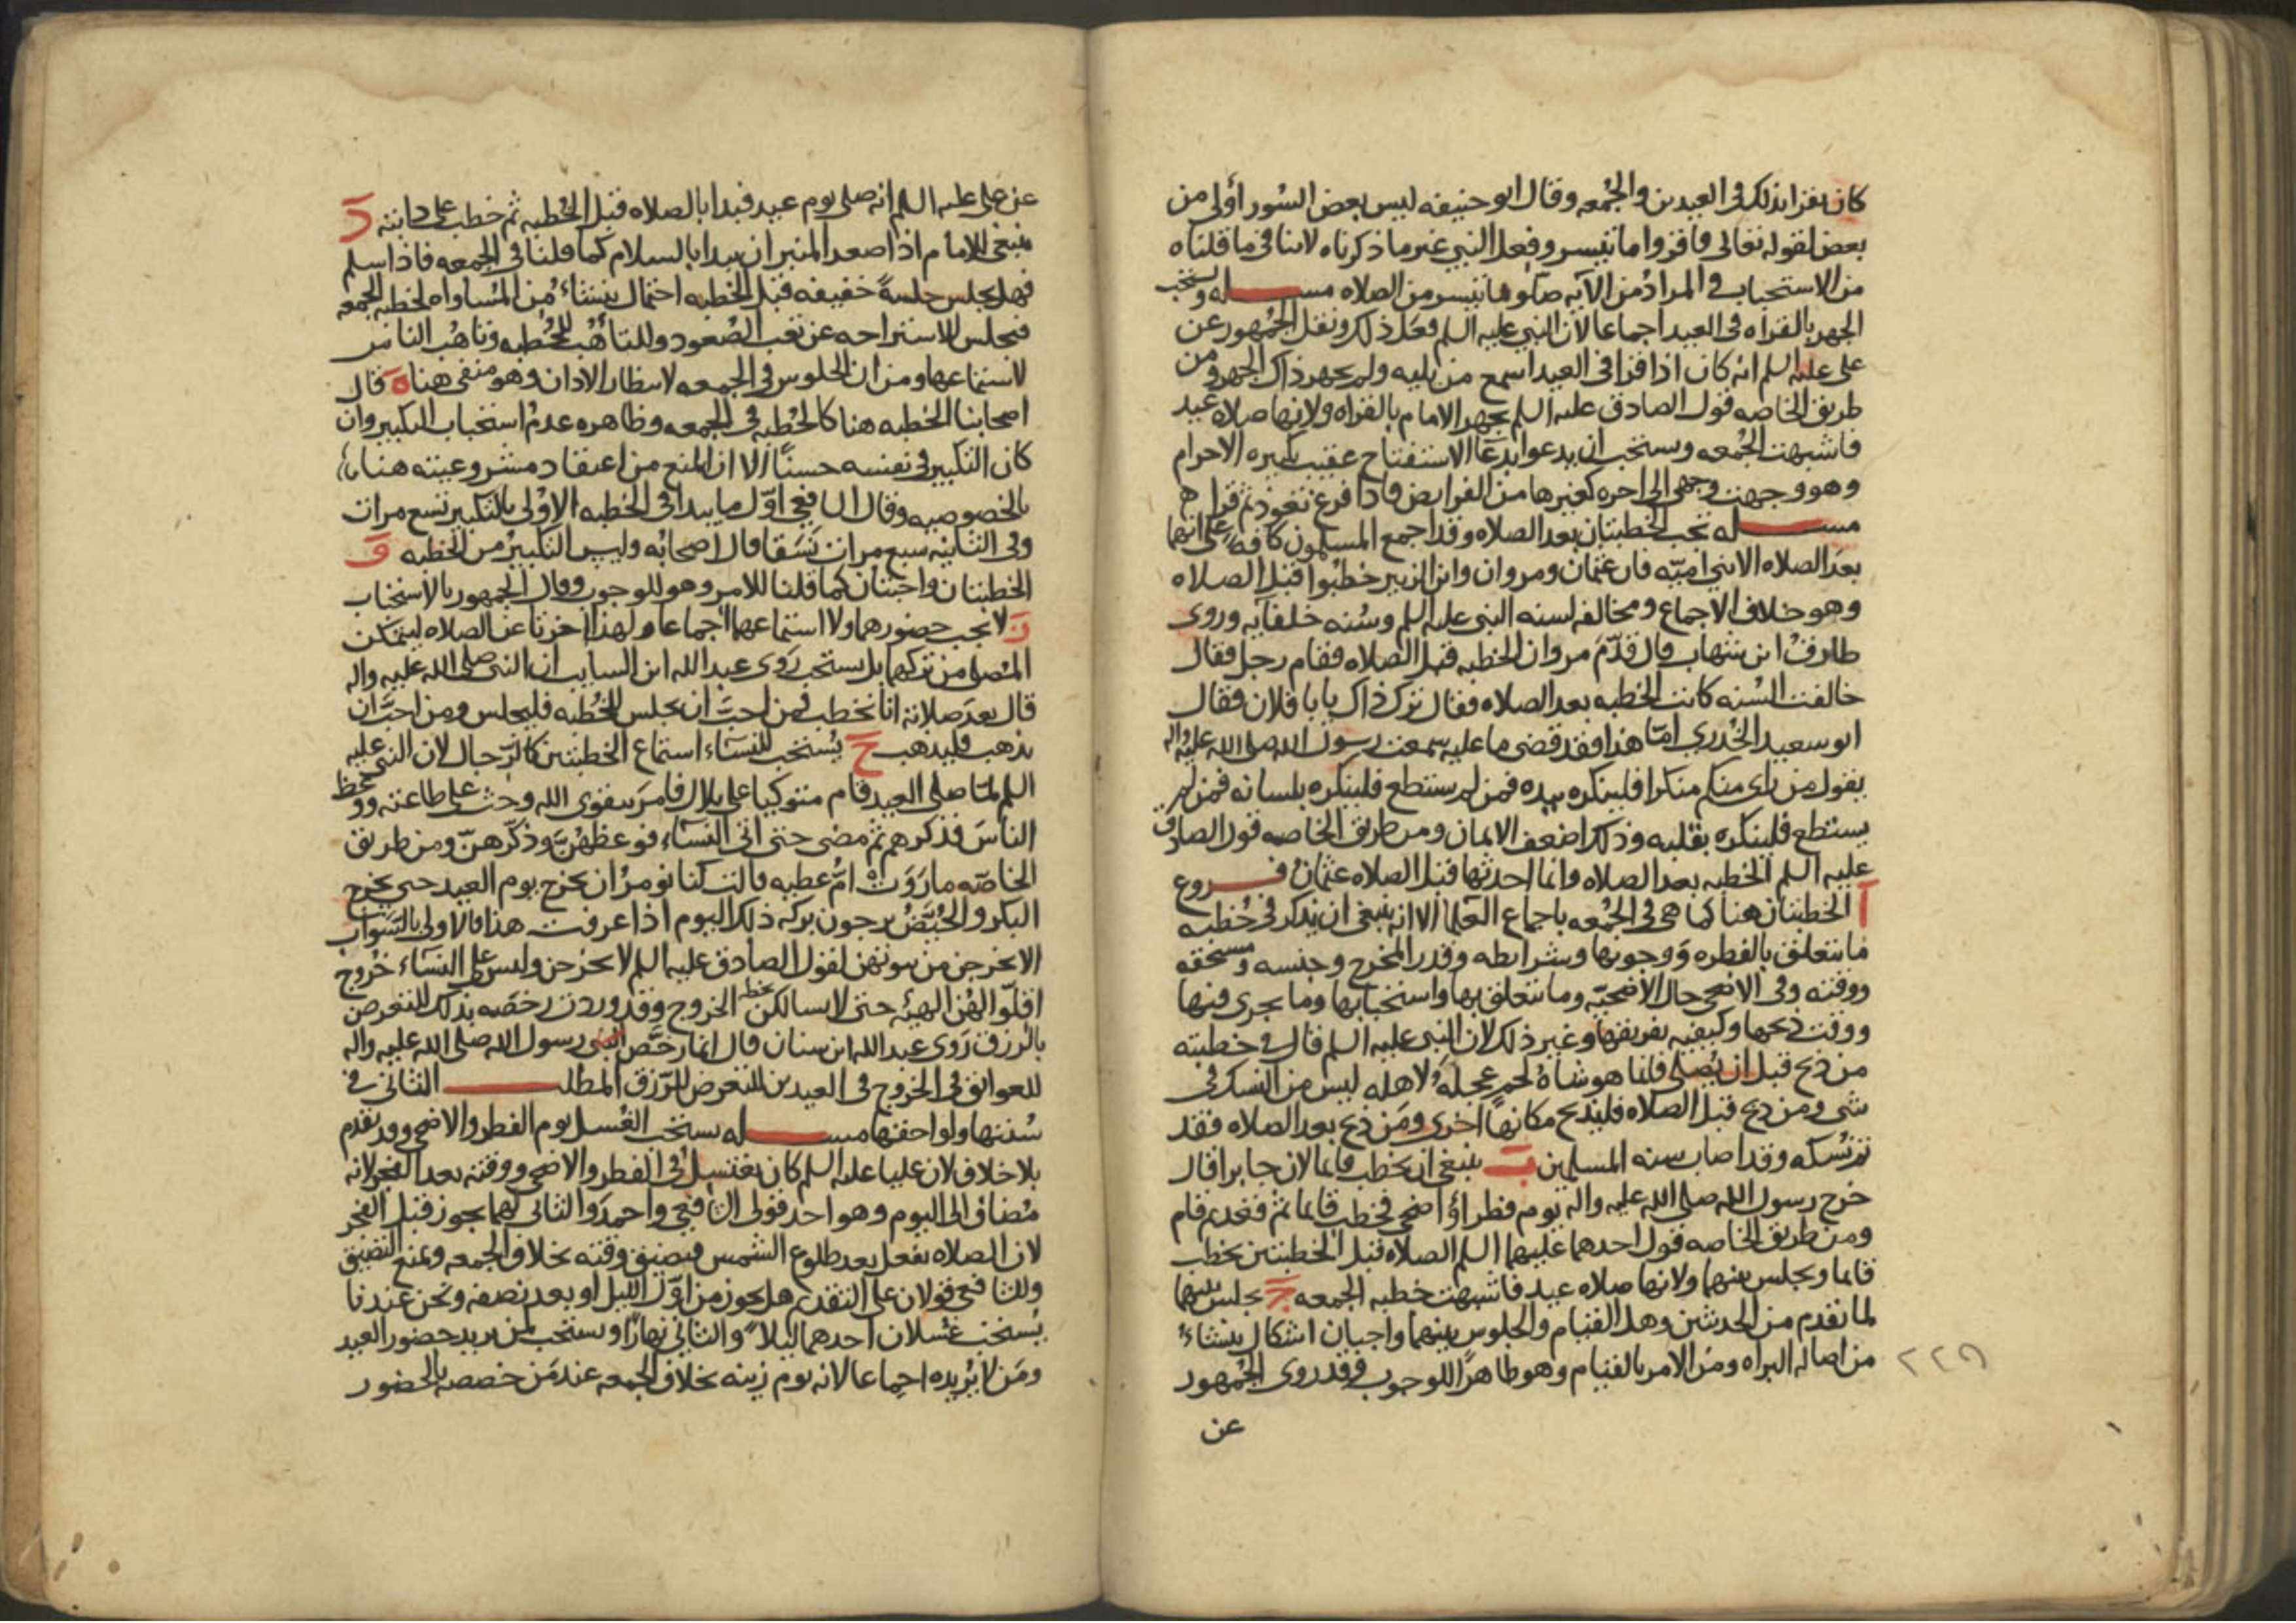 كان يقرا بذلك في العيدين والجمعه وقال ابو حنيفه ليس بعض السُور أولى من
بعض لقوله تعالى فاقرؤا ما تيسر وفعل النبي غير ما ذكرناه لاينافي ما قلناه
من الاستحباب والمرادُ من الآيه صلّوا ما تيسر من الصلاه مســـله ويستحب
الجهر بالقراه في العيد اجماعا لان النبي عليه السلم فعل ذلك ونقل الجُمهور عن
على عليه السلم انه كان اذا قرا في العيد اسمع من يليه ولم يجهر ذاك الجهر ومن
طريق الخاصه قول الصادق عليه السلم يجهر الامام بالقراه ولانها صلاه عيد
فاشبهت الجُمعه ويستحب ان يدعوا بدعَا الاستفتاح عقيب تكبيره الاحرام
وهو وجهت وجهي الى اخره كغيرها من الفرايض فاذا فرغ تعوذ ثم قرا
مســـله تجب الخطبتان بعد الصلاه وقد اجمع المسلمون كافه على انهما
بعدَ الصلاه الا بني اميّه فان عثمان ومروان وابن الزبير خطبُوا قبل الصلاه
وهو خلاف الاجماع ومخالفه لسنه النبي عليه السلم وسُنه خلفايه وروى
طارقُ ابن شهاب قال قدّمَ مروان الخطبه قبل الصلاه فقام رجل فقال
خالفت السُنه كانت الخطبه بعد الصلاه فقال ترك ذاك يا با فلان فقال
ابو سعيد الخُدري امّا هذا فقد قضى ما عليه سمعت رسول الله صلى الله عليه واله
يقول من راى منكم منكرا فلينكره بيده فمن لم يستطع فلينكره بلسانه فمن لم
يستطع فلينكره بقلبه وذلك اضعف الايمان ومن طريق الخاصه قول الصادق
عليه السلم الخطبه بعد الصلاه وانما احدثها قبل الصلاه عثمان فـــروع
آ الخطبتان هنا كما هي في الجُمعه باجماع العُلما الا انه ينبغي ان يذكر في خُطبه
ما يتعلق بالفطره وَوجوبها وشرايطه وقدر المخرج وجنسه ومستحقه
ووقته وفي الاضحى حال الاضحيّه وما يتعلق بها واستحبابها وما يجرى فيها
ووقت ذبحها وكيفيه تفريقها وغير ذلك لان النبي عليه السلم قال في خطبته
من ذبح قبل ان يُصلى فانما هو شاهُ لحمٍ عجلهُ لاهله ليس من النسك في
شى ومن ذبح قبل الصلاه فليذبح مكانهاً اخرى ومَن ذبح بعد الصلاه فقد
تم نُسكه وقد اصاب سنه المسلمين بَ ينبغي ان يخطب قايما لان جابرا قال
خرج رسول الله صلى الله عليه واله يوم فطر اوُ اضحى فخطب قايما ثم فقعد ثم قام
ومن طريق الخاصه قول احدهما عليهما السلم الصلاه قبل الخطبتين يخطب
قايما ويجلس بينهما ولانها صلاه عيد فاشبهت خطبه الجمعه جَ يجلس بينهما
لما تقدم من الحديثين وهل القيام والجلوس بينهما واجبان اشكال ينشاءُ
من اصاله البراه ومن الامر بالقيام وهو ظاهرًا للوجوب وقد روى الجُمهور
٢٢٩
عن
عن على عليه السلم انه صلى يوم عيد فبدا بالصلاه قبل الخُطبه ثم خطب على دابته دَ
ينبغي للامام اذا صعد المنبر ان يبدا بالسلام كما قلنا في الجمعه فاذا سلم
فهل يجلس جلسةً خفيفه قبل الخطبه احتمال ينشاءُ من المُساواه لخطبه الجمعه
فيجلس للاستراحه عن تعب الصُعود وللتاهُّب للخُطبه وتاهُّب الناس
لاستماعها ومن ان الجلوس في الجمعه لانتظار الاذان وهو منفي هنا هَ قال
اصحابنا الخطبه هنا كالخُطبه في الجمعه وظاهره عدم استحباب التكبير وان
كان التكبير في نفسه حسناً الا ان المنع من اعتقاد مشروعيته هنا
بالخصوصيه وقال الشافعي اوّل ما يبدا في الخطبه الاوْلى بالتكبير تسع مرات
وفي الثانيه سبع مرات نَسَقا قال اصحابُه وليس التكبيرُ من الخطبه وَ
الخطبتان واجبتان كما قلنا للامر وهو للوجوب وقال الجمهور بالاستحباب
زَ لا يجب حضورهما ولا استماعهما اجماعا ولهذا اخرتا عن الصلاه ليتمكن
المُصلي من تركهما بل يستحب رَوى عبد الله ابن السايب ان النبي صلى الله عليه واله
قال بعدَ صلاته انا نخطب فمن احبّ ان يجلس للخُطبه فليجلس ومن احبَّ ان
يذهب فليذهب حَ يُستحب للنسَاء استماع الخطبتين كالرّجال لان النبي عليه
السلم لمّا صلى العيد قام متوكيا على بلال فامرَ بتقوى الله وحث على طاعته ووعظ
الناسَ فذكرهم ثم مضى حتى اتى النسَاء فوعظهُنّ وذكّرهنّ ومن طريق
الخاصّه ما رَوَتْه امّ عطيه قالت كنا نومرُ ان نخرج يوم العيد حتى نخرج
البكر والحُيَّضُ يرجون بركه ذلك اليوم اذا عرفت هذا فالاولى بالشَوابّ
الا يخرجن من بيوتهن لقول الصادق عليه السلم لا يخرجن وليس على النسَاء خُروج
اقلّوا لهُن الهيئه حتى لا يسالكن الخروج وقد وردت رخصه بذلك للتعرض
بالرزق رَوى عبد الله ابن سنان قال انما رخّص رسول الله صلى الله عليه واله
للعواتق في الخروج في العيدين للتعرض للرّزق المطلـــب الثاني في
سُننها ولواحقها مســـله يستحب الغُسل يوم الفطر والاضحى وقد تقدم
بلا خلاف لان عليا عليه السلم كان يغتسل في الفطر والاضحى ووقته بعد الفجر لانه
مُضاف الى اليوم وهو احد قولي الشافعي واحمدَ والثاني لهما يجوز قبل الفجر
لان الصلاه تفعل بعد طلوع الشمس فيضيق وقته بخلاف الجمعه ونمنع التضيق
وللشافعي قولان على التقديم هل يجوز من اوّل الليل او بعد نصفه ونحن عندنا
يُستحب غسلان احدهما ليلاً والثاني نهارًا ويستحب لمن يريد حضور العيد
ومَن لا يُريده اجماعا لانه يوم زينه بخلاف الجمعه عند مَن خصصه بالحضور